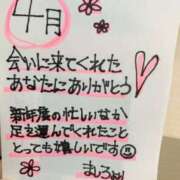 4月
会いに来てくれた
あなたにありがとう
新年度の忙しいなか
足を運んでくれたこと
とっても嬉しいです
ましろ